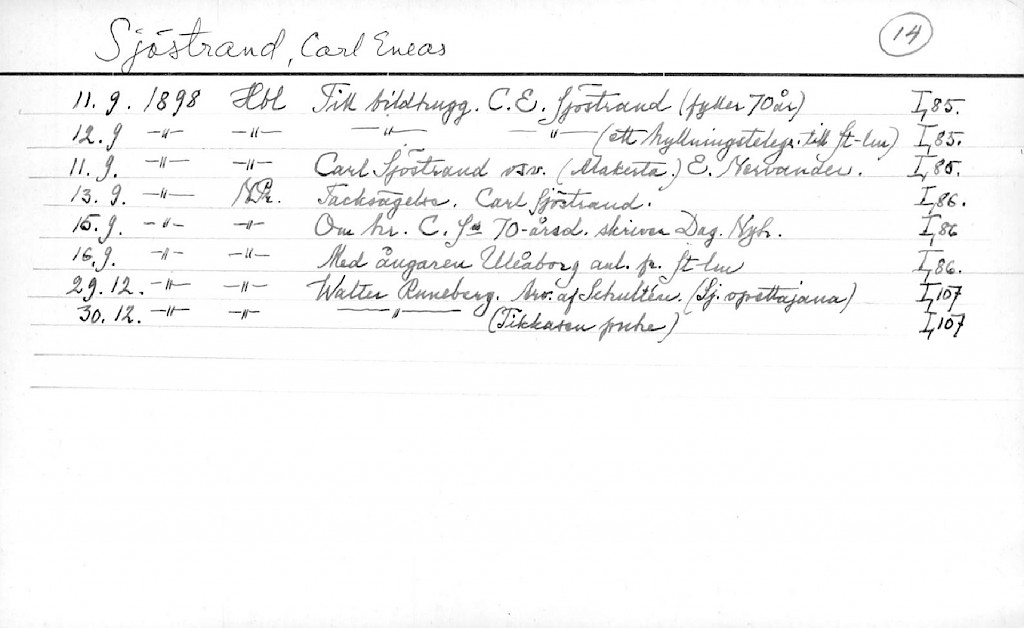 Sjöstrand, Carl Eneas 14
11. 9. 1898 Hbl Till bildhugg. C. E. Sjöstrand (fyller 70 år) I, 85.
12. 9 –"– –"– –"– –"– (ett hyllningstelegr. till St-lm) I, 85.
11. 9. –"– –"– Carl Sjöstrand E. Nervander. I, 85.
13. 9. –"– NPr. Tacksägelse. Carl Sjöstrand. I, 86.
15. 9. –"– –"– Om hr. C. S:s 70-årsd. skriver Dag. Nyh. I, 86
16. 9. –"– –"– Med ångaren Uleåborg anl. fr. St-lm I, 86.
29. 12. –"– –"– Walter Runeberg. Arv. af Schultén. (Sj. opettajana) I, 107
30. 12. –"– –"– –"– (Tikkasen puhe) I, 107